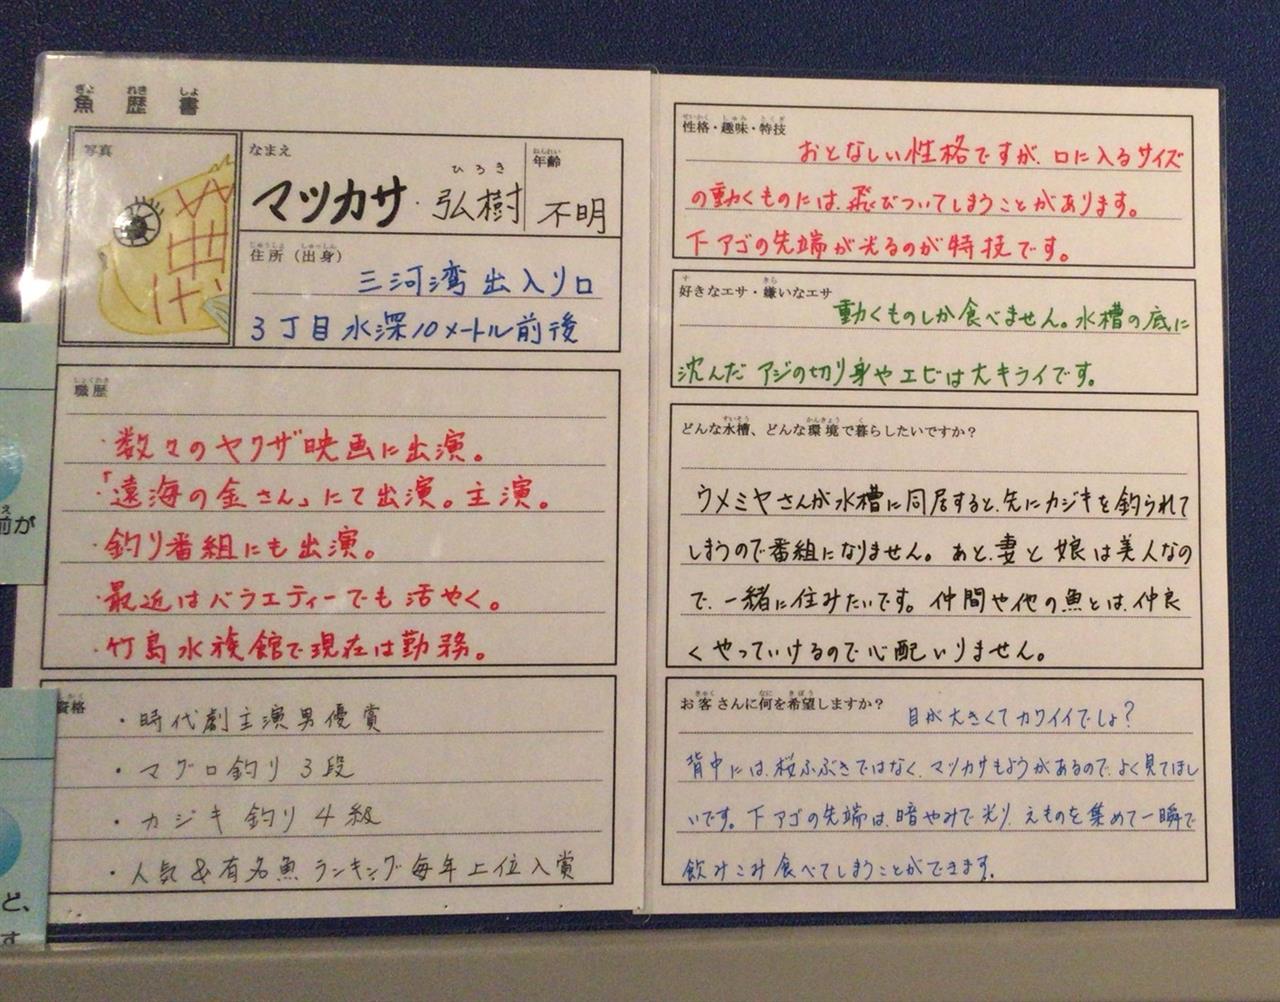 魚歴書
ぎょ れき しょ
写真
なまえ
ひろき
マツカサ・弘樹
ねんれい
年齢
不明
じゅうしょ しゅっしん
住所（出身）
三河湾出入り口
3丁目水深10メートル前後
しょくれき
職歴
・数々のヤクザ映画に出演。
・「遠海の金さん」にて出演。主演。
・釣り番組にも出演。
・最近はバラエティーでも活やく。
・竹島水族館で現在は勤務。
資格
・時代劇主演男優賞
・マグロ釣り3段
・カジキ釣り4級
・人気&有名魚ランキング毎年上位入賞
せいかく しゅみ とくぎ
性格・趣味・特技
おとなしい性格ですが、口に入るサイズ
の動くものには、飛びついてしまうことがあります。
下アゴの先端が光るのが特技です。
す きら
好きなエサ・嫌いなエサ
動くものしか食べません。水槽の底に
沈んだアジの切り身やエビは大キライです。
すいそう かんきょう く
どんな水槽、どんな環境で暮らしたいですか？
ウメミヤさんが水槽に同居すると、先にカジキを釣られて
しまうので番組になりません。あと、妻と娘は美人なの
で、一緒に住みたいです。仲間や他の魚とは、仲良
くやっていけるので心配いりません。
きゃく なに きぼう
お客さんに何を希望しますか？
目が大きくてカワイイでしょ？
背中には、桜ふぶきではなく、マツカサもようがあるので、よく見てほし
いです。下アゴの先端は、暗やみで光り、えものを集めて一瞬で
飲みこみ食べてしまうことができます。
え
前が
ど、
す